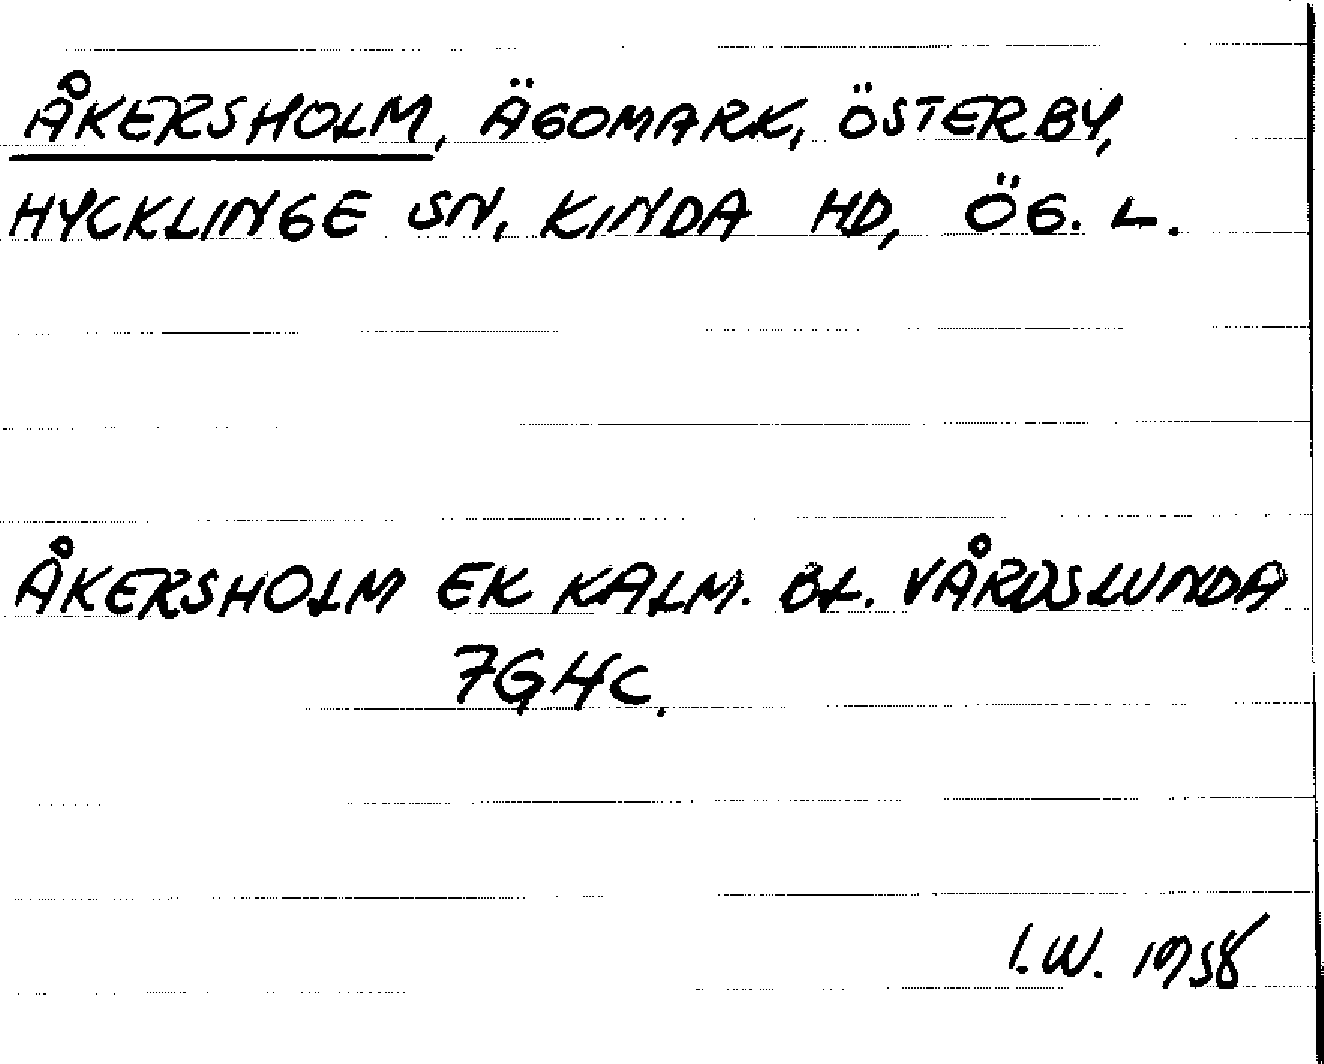 ÅKERSHOLM, ÄGOMARK, ÖSTERBY,
HYCKLINGE SN, KINDA HD, ÖG. L.
ÅKERSHOLM EK KALM. BL. VÅRDSLUNDA
7G4C.
I.W. 1958